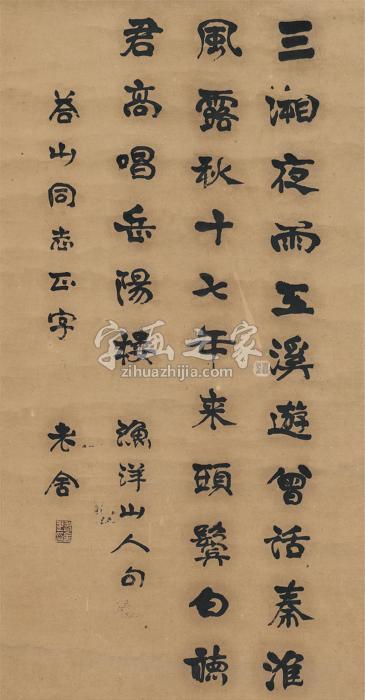 三湘夜雨五溪遊曾話秦淮
風露秋十七年来頭鬢白聽
君高唱岳陽樓 漁洋山人句
山同志正字 老舍
字画之家
zihuazhijia.com